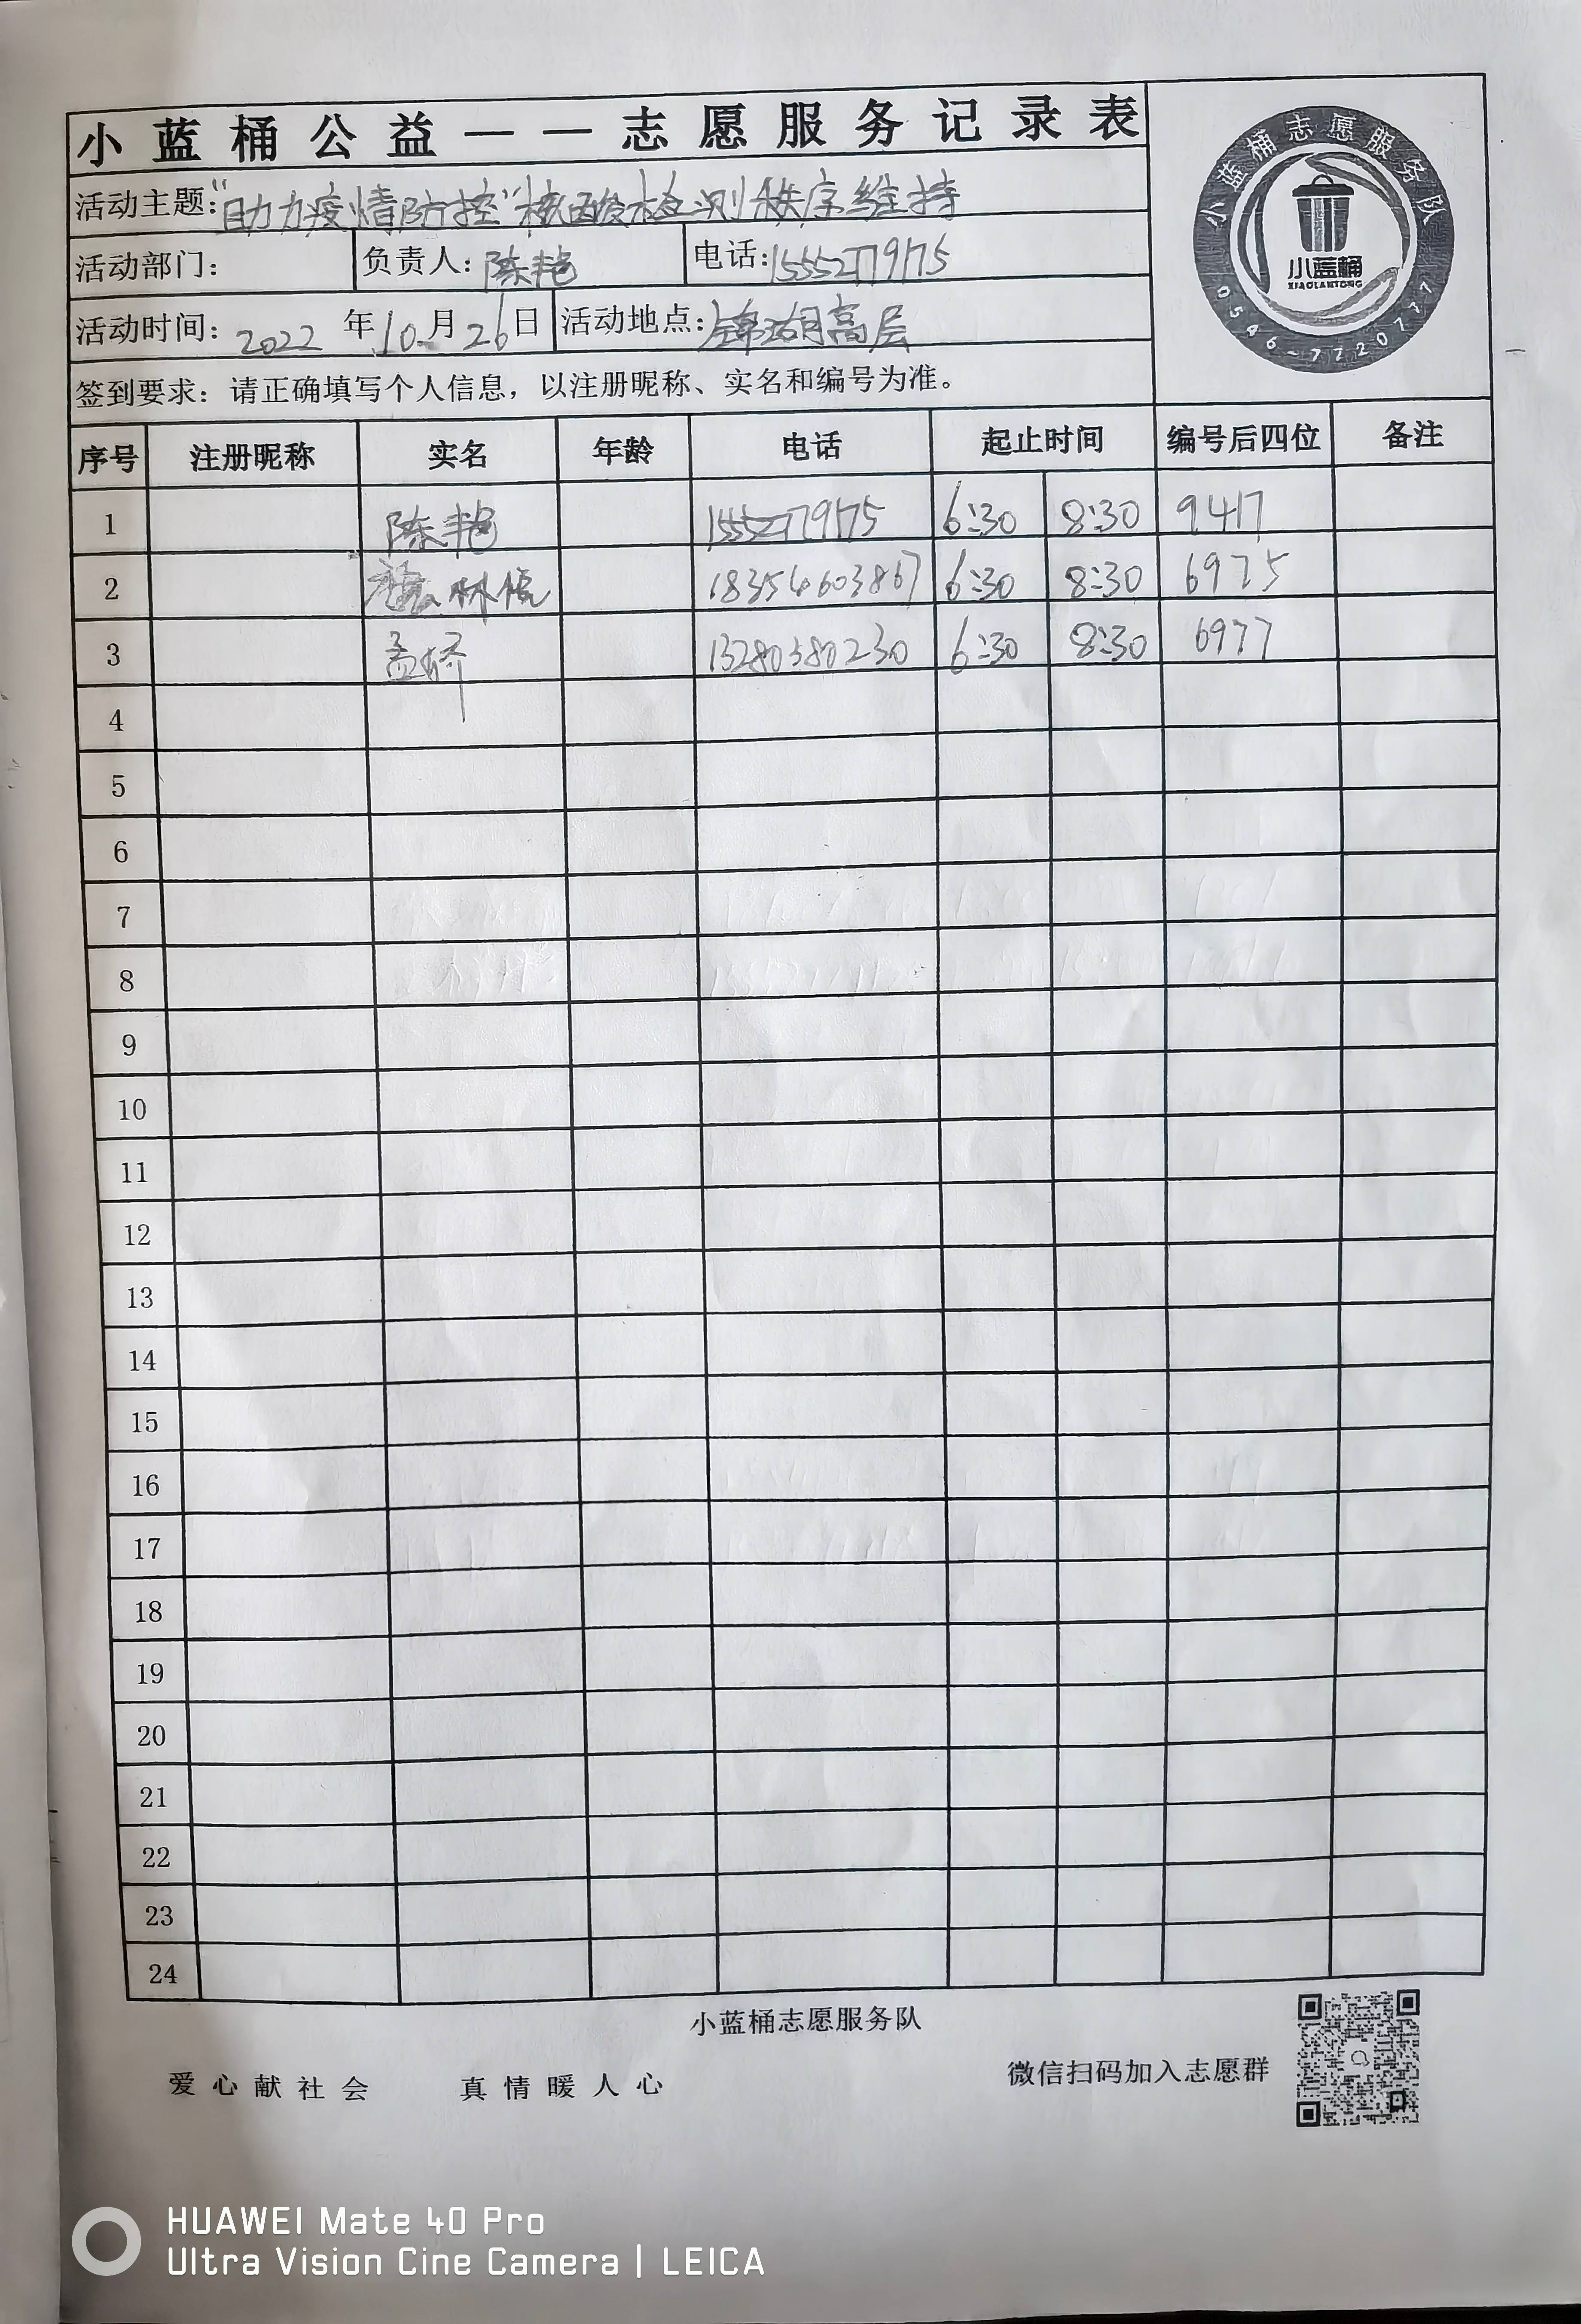 小蓝桶公益——志愿服务记录表
活动主题：“助力疫情防控”核酸检测秩序维持
活动部门： 负责人：陈艳 电话：15552779175
活动时间：2022年10月26日 活动地点：锦湖高层
签到要求：请正确填写个人信息，以注册昵称、实名和编号为准。
小蓝桶志愿服务队
小蓝桶
XIAOLANTONG
0546-7720777
序号 注册昵称 实名 年龄 电话 起止时间 编号后四位 备注
1 陈艳 15552779175 6:30 8:30 9417
2 林悦 18354603867 6:30 8:30 6975
3 孟娇 13280380230 6:30 8:30 6977
4
5
6
7
8
9
10
11
12
13
14
15
16
17
18
19
20
21
22
23
24
小蓝桶志愿服务队
爱心献社会 真情暖人心 微信扫码加入志愿群
HUAWEI Mate 40 Pro
Ultra Vision Cine Camera | LEICA